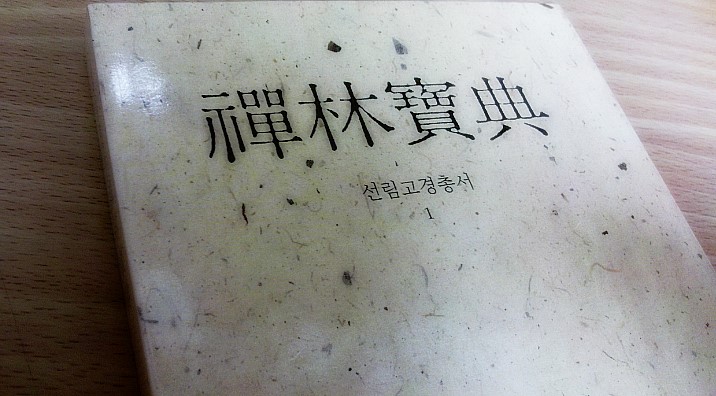 禪林寶典
선림고경총서
1